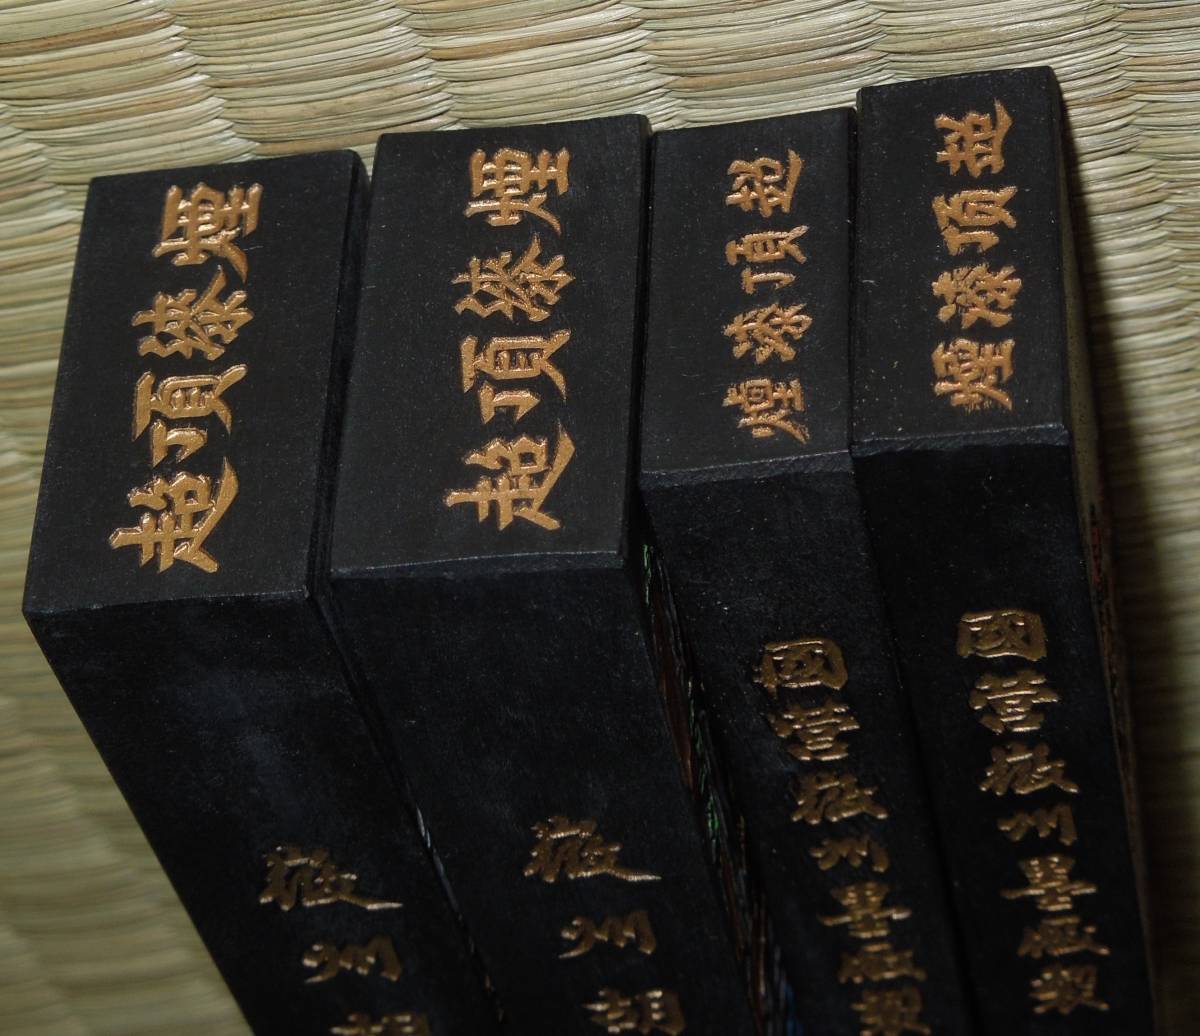 超頂漆煙
徽州胡
超頂漆煙
徽州胡
超頂漆煙
國營徽州墨廠製
超頂漆煙
國營徽州墨廠製